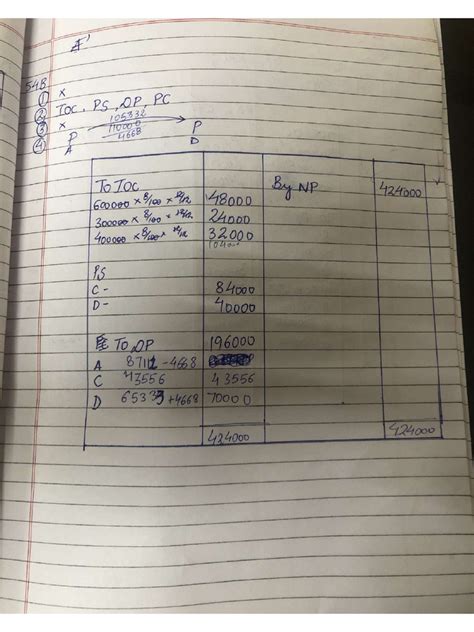 54B
① x
② IOC, PS, DP, PC
③ x
④ P 105332 P
A 110000 D
4668
To IOC By NP 424000
600000 × 8/100 × 12/12 48000
300000 × 8/100 × 12/12 24000
400000 × 8/100 × 12/12 32000
104000
PS
C- 84000
D- 40000
To DP 196000
A 87112 - 4668
C 43556 43556
D 65333 + 4668 70000
424000 424000